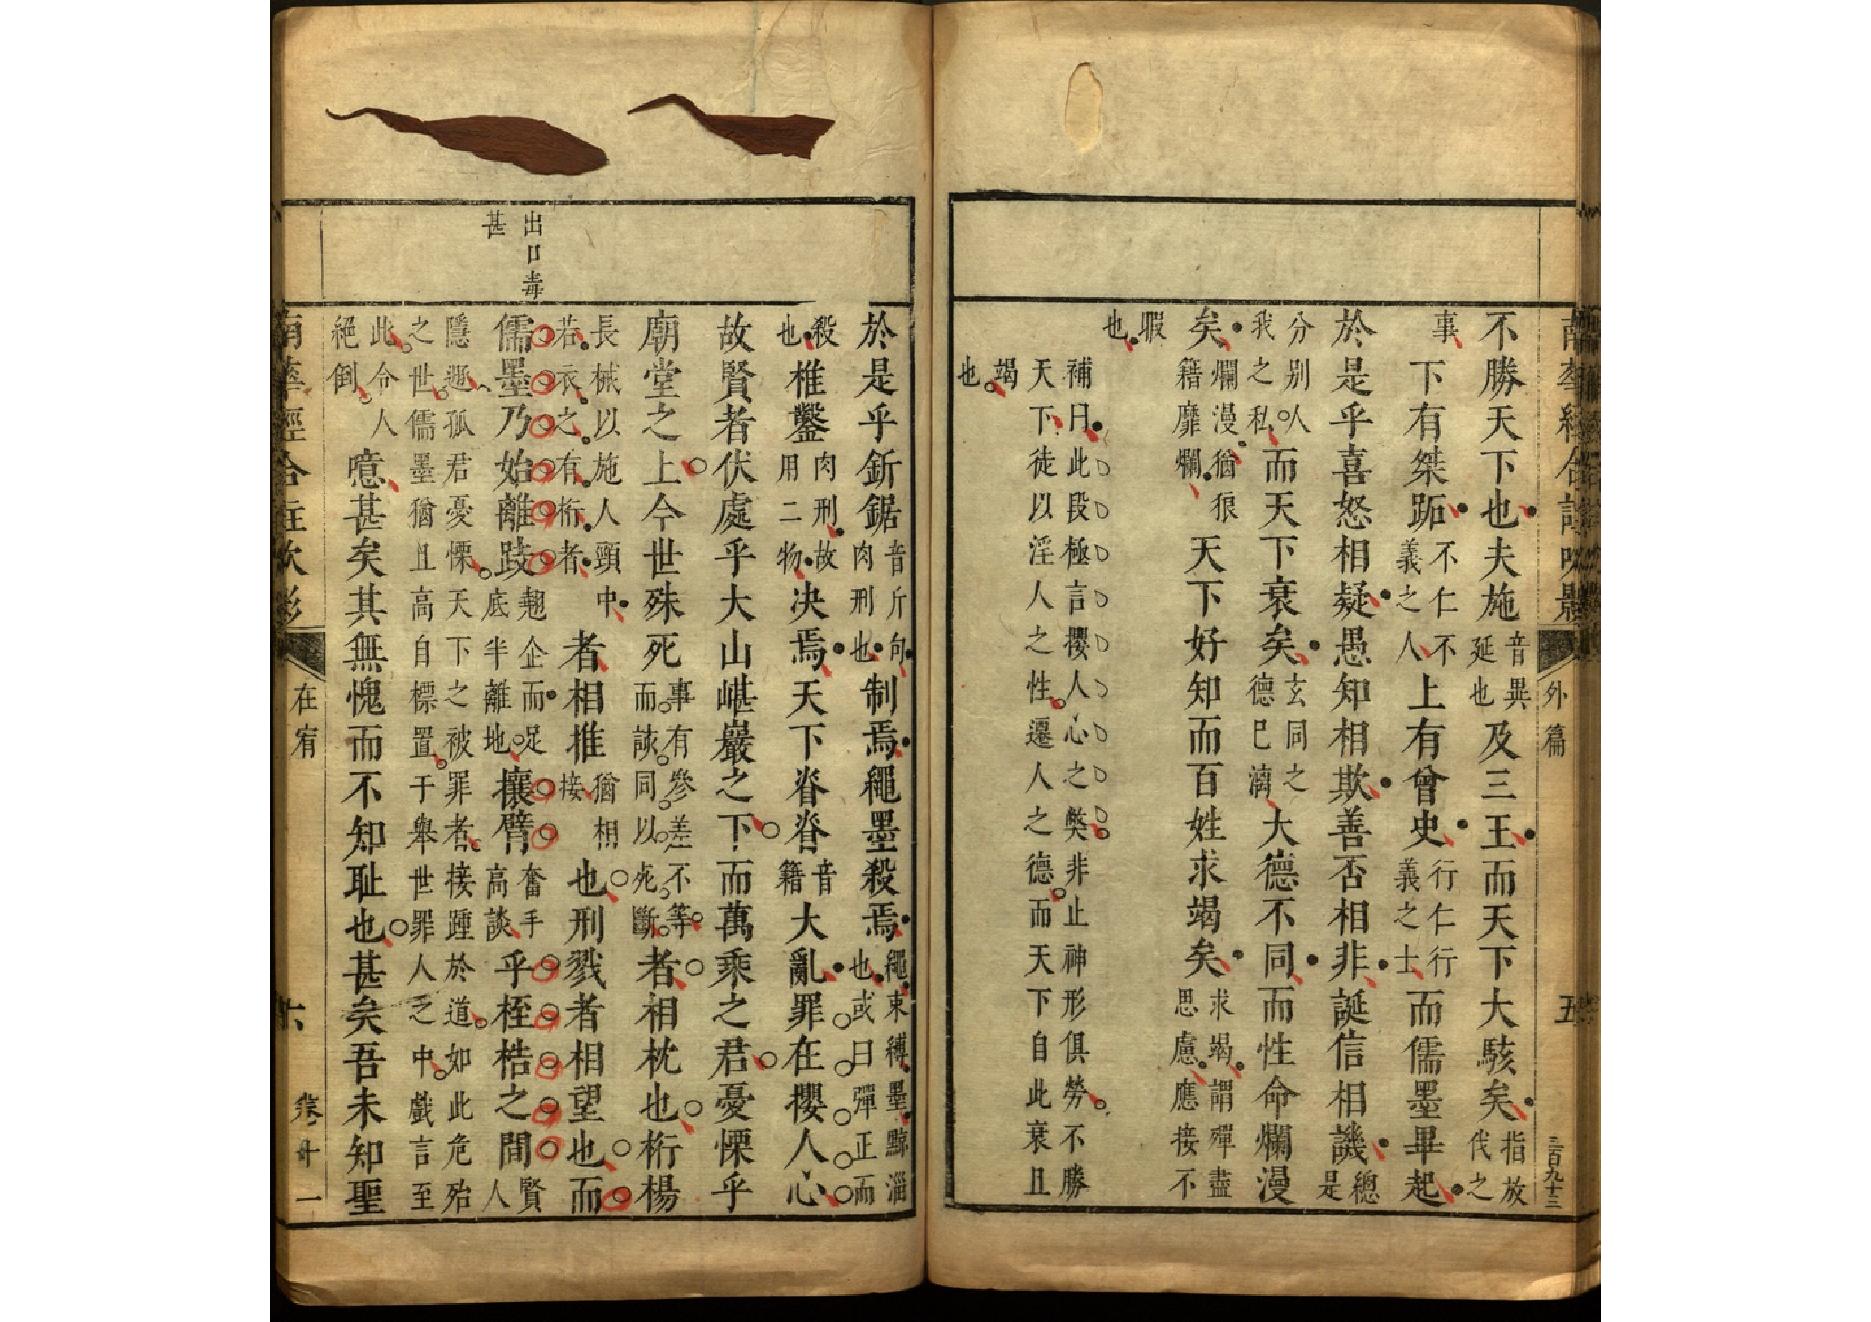 外篇
五
三百九十三
不勝天下也夫施音異延也及三王而天下大駭矣指放伐之
事下有桀跖不仁不義之人上有曾史行仁行義之士而儒墨畢起
於是乎喜怒相疑愚知相欺善否相非誕信相譏總是
分別人我之私而天下衰矣玄同之德已漓大德不同而性命爛漫
矣爛漫猶狠籍靡爛天下好知而百姓求竭矣求竭謂殫盡思慮應接不
暇也
補曰此段極言攖人心之獘非止神形俱勞不勝
天下徒以淫人之性遷人之德而天下自此衰且
竭也
於是乎釿鋸音斤句肉刑也制焉繩墨殺焉繩束縛墨黥淄也或曰彈正而
殺也椎鑿肉刑故用二物决焉天下脊脊音籍大亂罪在攖人心
故賢者伏處乎大山嵁巖之下而萬乘之君憂慄乎
廟堂之上今世殊死事有參差不等而該同以死斷者相枕也桁楊
長械以施人頸中若衣之有桁者者相推猶相接也刑戮者相望也而
儒墨乃始離跂翹企而足底半離地攘臂奮手高談乎桎梏之間賢人
隱遯孤君憂慄天下之被罪者接踵於道如此危殆
之世儒墨猶且高自標置于舉世罪人之中戲言至
此令人絕倒噫甚矣其無愧而不知耻也甚矣吾未知聖
出口毒
甚
南華經合註吹影
在宥
六
卷十一